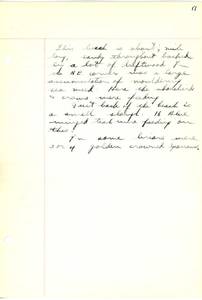 This beach is about 1/2 mile
long, sandy throughout backed
by a lot of driftwood. In
the NE corner was a large
accumulation of mouldering
sea weed. Here the
& crows were feeding
Just back of the beach is
a small slough. 16
were feeding on
this.
In some were
3 or 4 golden crowned sparrows.